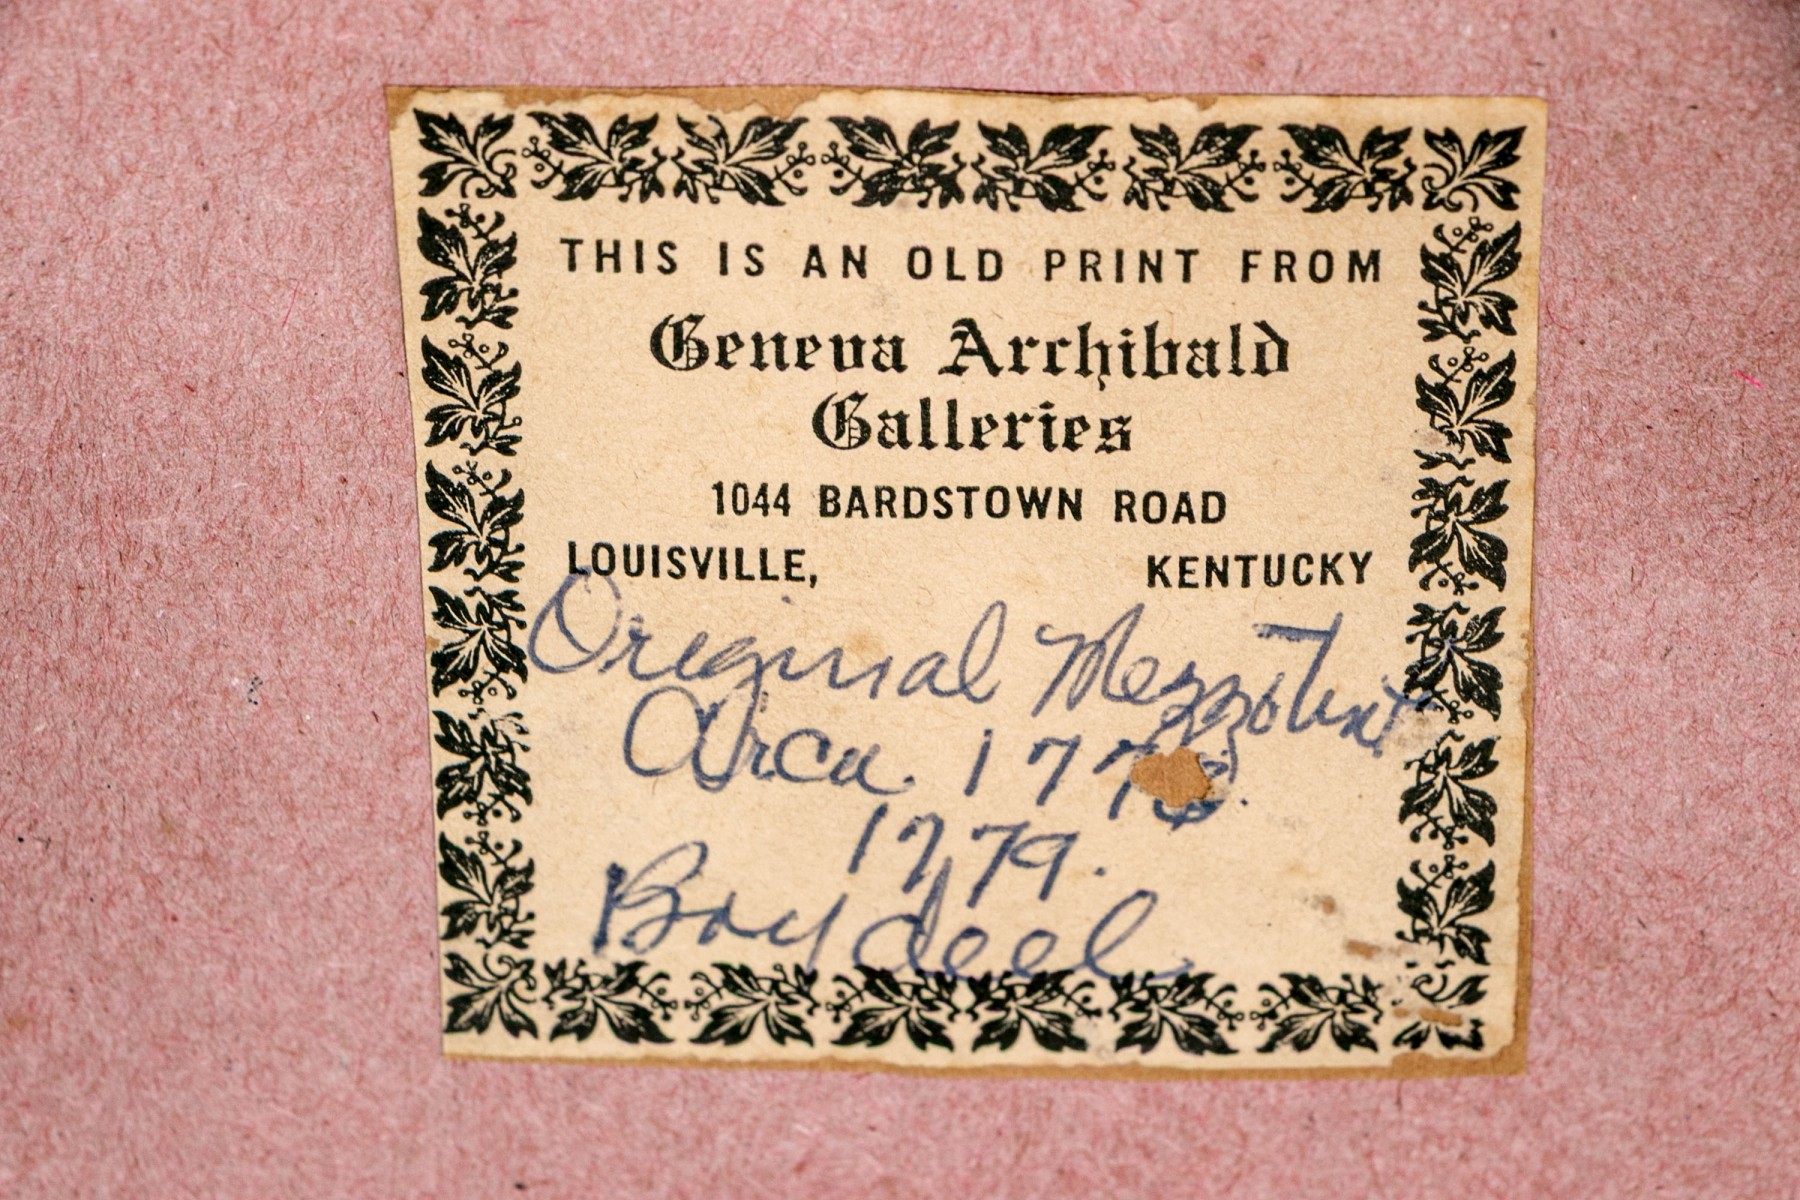 THIS IS AN OLD PRINT FROM
Geneva Archibald
Galleries
1044 BARDSTOWN ROAD
LOUISVILLE, KENTUCKY
Original Mezzotint
Circa
1779.
Boydeel